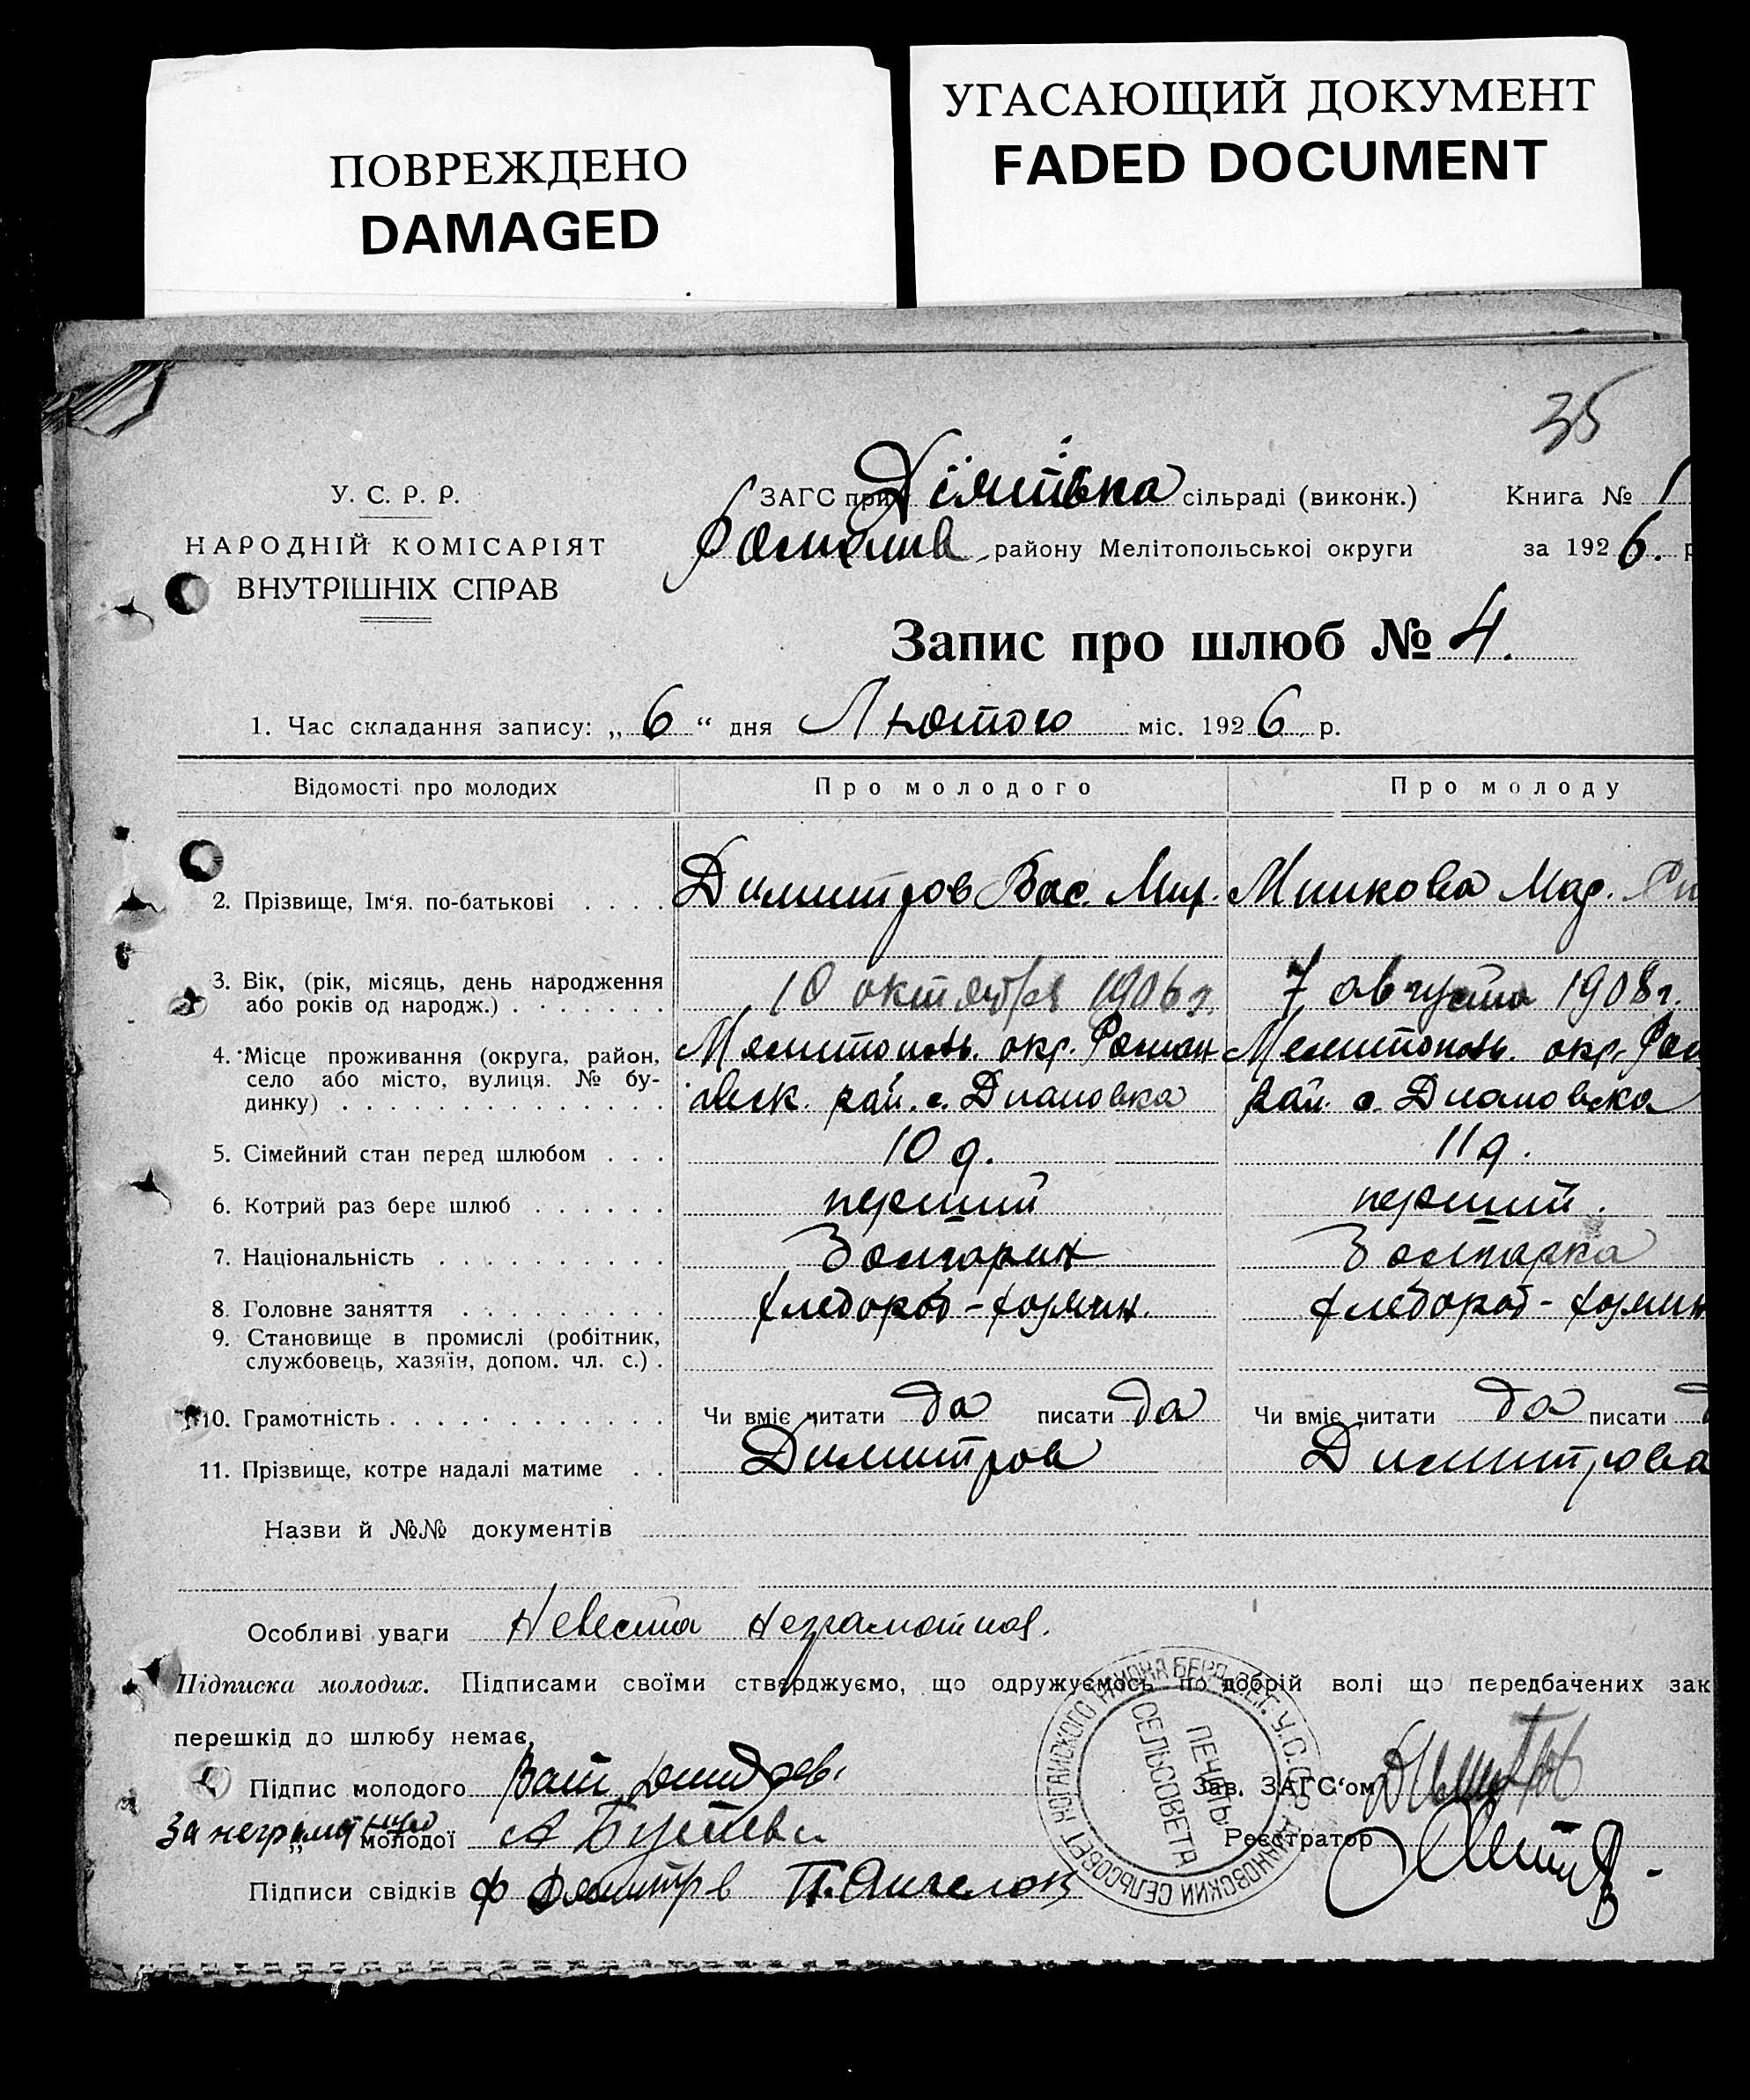 ПОВРЕЖДЕНО
DAMAGED
УГАСАЮЩИЙ ДОКУМЕНТ
FADED DOCUMENT
35
У. С. Р. Р.
НАРОДНІЙ КОМІСАРІЯТ
ВНУТРІШНІХ СПРАВ
ЗАГС при сільраді (виконк.) Книга № 1
району Мелітопольської округи за 1926. р
Запис про шлюб № 4.
1. Час складання запису: „6“ дня Лютого міс. 1926 р.
Відомості про молодих Про молодого Про молоду
2. Прізвище, Ім'я. по-батькові . . . . Димитров Вас. Мих. Минкова Мар.
3. Вік, (рік, місяць, день народження
або років од народж.) . . . . . . . 10 октября 1906 г. 7 августа 1908 г.
4. Місце проживання (округа, район, Мелитополь. окр. Роман Мелитополь. окр. Ром
село або місто, вулиця. № бу-
динку) . . . . . . . . . . . . . . овск. рай. с. Диановка рай. с. Диановка
5. Сімейний стан перед шлюбом . . . 10 д. 11 д.
6. Котрий раз бере шлюб . . . . . . перший перший.
7. Національність . . . . . . . . . . Болгарин Болгарка
8. Головне заняття . . . . . . . . . хлебороб -
хлебороб -
9. Становище в промислі (робітник,
службовець, хазяїн, допом. чл. с.) .
10. Грамотність . . . . . . . . . . . . Чи вміє читати да писати да Чи вміє читати да писати
11. Прізвище, котре надалі матиме . . Димитров Димитрова
Назви й №№ документів
Особливі уваги Невеста неграмотная.
Підписка молодих. Підписами своїми стверджуємо, що одружуємось по добрій волі що передбачених зак
перешкід до шлюбу немає.
Підпис молодого
За неграмотную
„ молодої А
Підписи свідків Ф Димитрв П. Ангелов
Зав. ЗАГС'ом
Реєстратор
ПЕЧАТЬ
СЕЛЬСОВЕТА